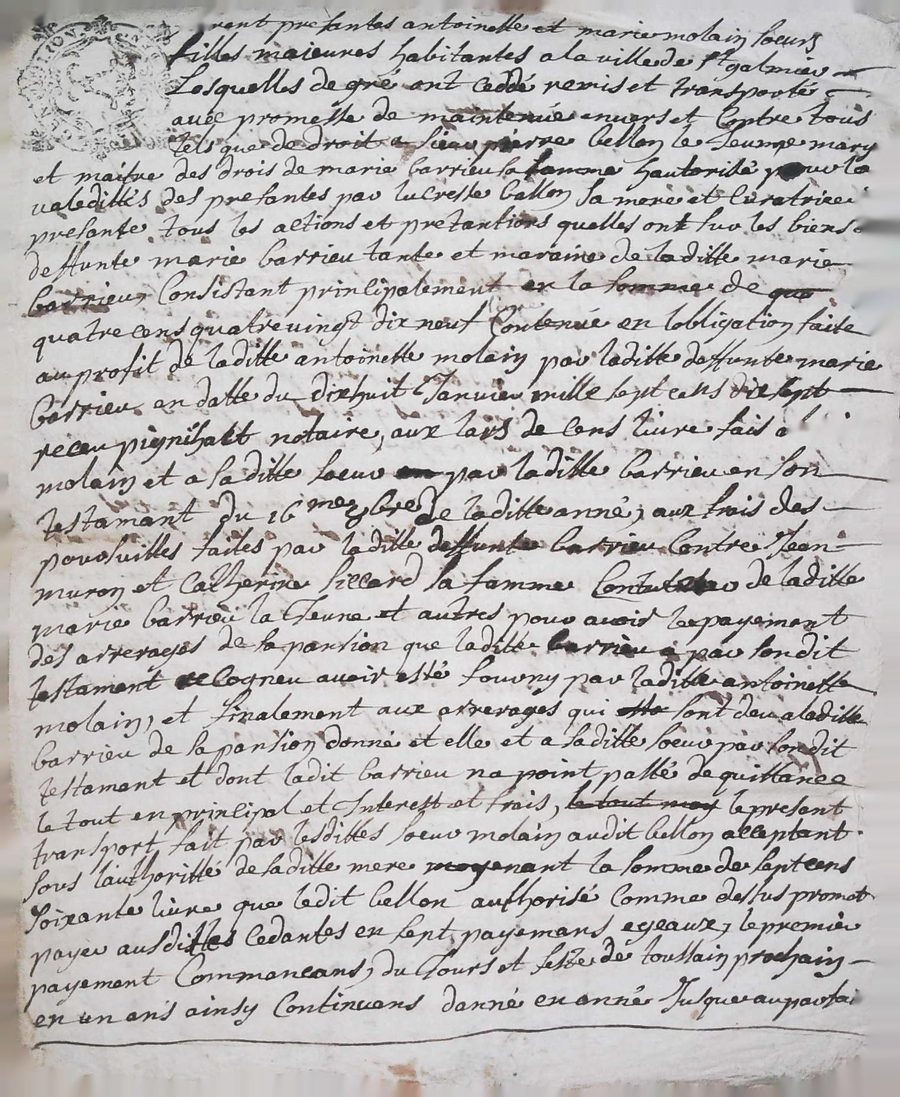 rent presantes antoinette et marie molain soeurs
filles maieures habitantes a la ville de st galmier
Lesquelles de gré ont ceddé remis et transporté
avec promesse de maintenüe envers et Contre tous
tels que de droit a sieur pierre bellon le Jeune mary
et maitre des drois de marie barrieu sa famme hautorisé pour la
validittés des presantes par lucresse bellon sa mere et Curatrice
presante tous les actions et pretantions quelles ont sur les biens
deffunte marie barrieu tante et maraine de laditte marie
barrieu, Consistant principalement en la somme de
quatre cens quatre vingt dix neuf Contenüe en lobligation faite
au profit de laditte antoinette molain par laditte deffunte marie
barrieu en datte du dixhuit Janvier mille sept cens dix sept
receu notaire, aux lais de cens livre fais a
molain et a saditte soeur par laditte barrieu en son
testamant du 16me de laditte anné, aux frais des
poursuittes faites par laditte deffunte barrieu Contre Jean
muron et Catherine sa famme de laditte
marie barrieu la Jeune et autres pour avoir le payement
des arrerages de sa pansion que laditte barrieu a par sondit
testamant recogneu avoir esté fourny par laditte antoinette
molain, et finalement aux arrerages qui sont deu a laditte
barrieu de sa pansion donné et elle et a saditte soeur par son dit
testamant et dont ladit barrieu na point passé de quittance
le tout en principal et Interest et frais, le tout moy le presant
transport fait par lesdittes soeur molain audit bellon acceptant
sous lauthoritté de saditte mere moyenant la somme de sept cens
soixante livre que ledit bellon authorisé Comme dessus promet
payer ausdittes Cedantes en sept payemans egeaux, le premier
payement Commancans, du Jours et feste de toussain prochain
en un ans ainsy Continuans danné en anné Jusque au parfai